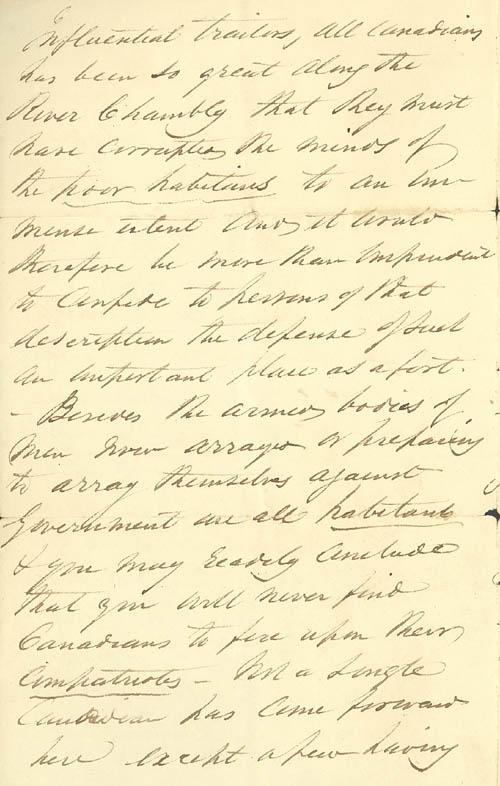 Influential traitors, all Canadians
has been so great along the
River Chambly that they must
have corrupted the minds of
the poor habitans to an im-
mense extent and it would
therefore be more than imprudent
to confide to persons of that
description the defense of such
an important place as a fort.
- Besides the armed bodies of
men now arrayed or preparing
to array themselves against
Government are all habitans
& you may readily conclude
that you will never find
Canadians to fire upon their
Compatriotes - Not a single
Canadian has come forward
here except a few having